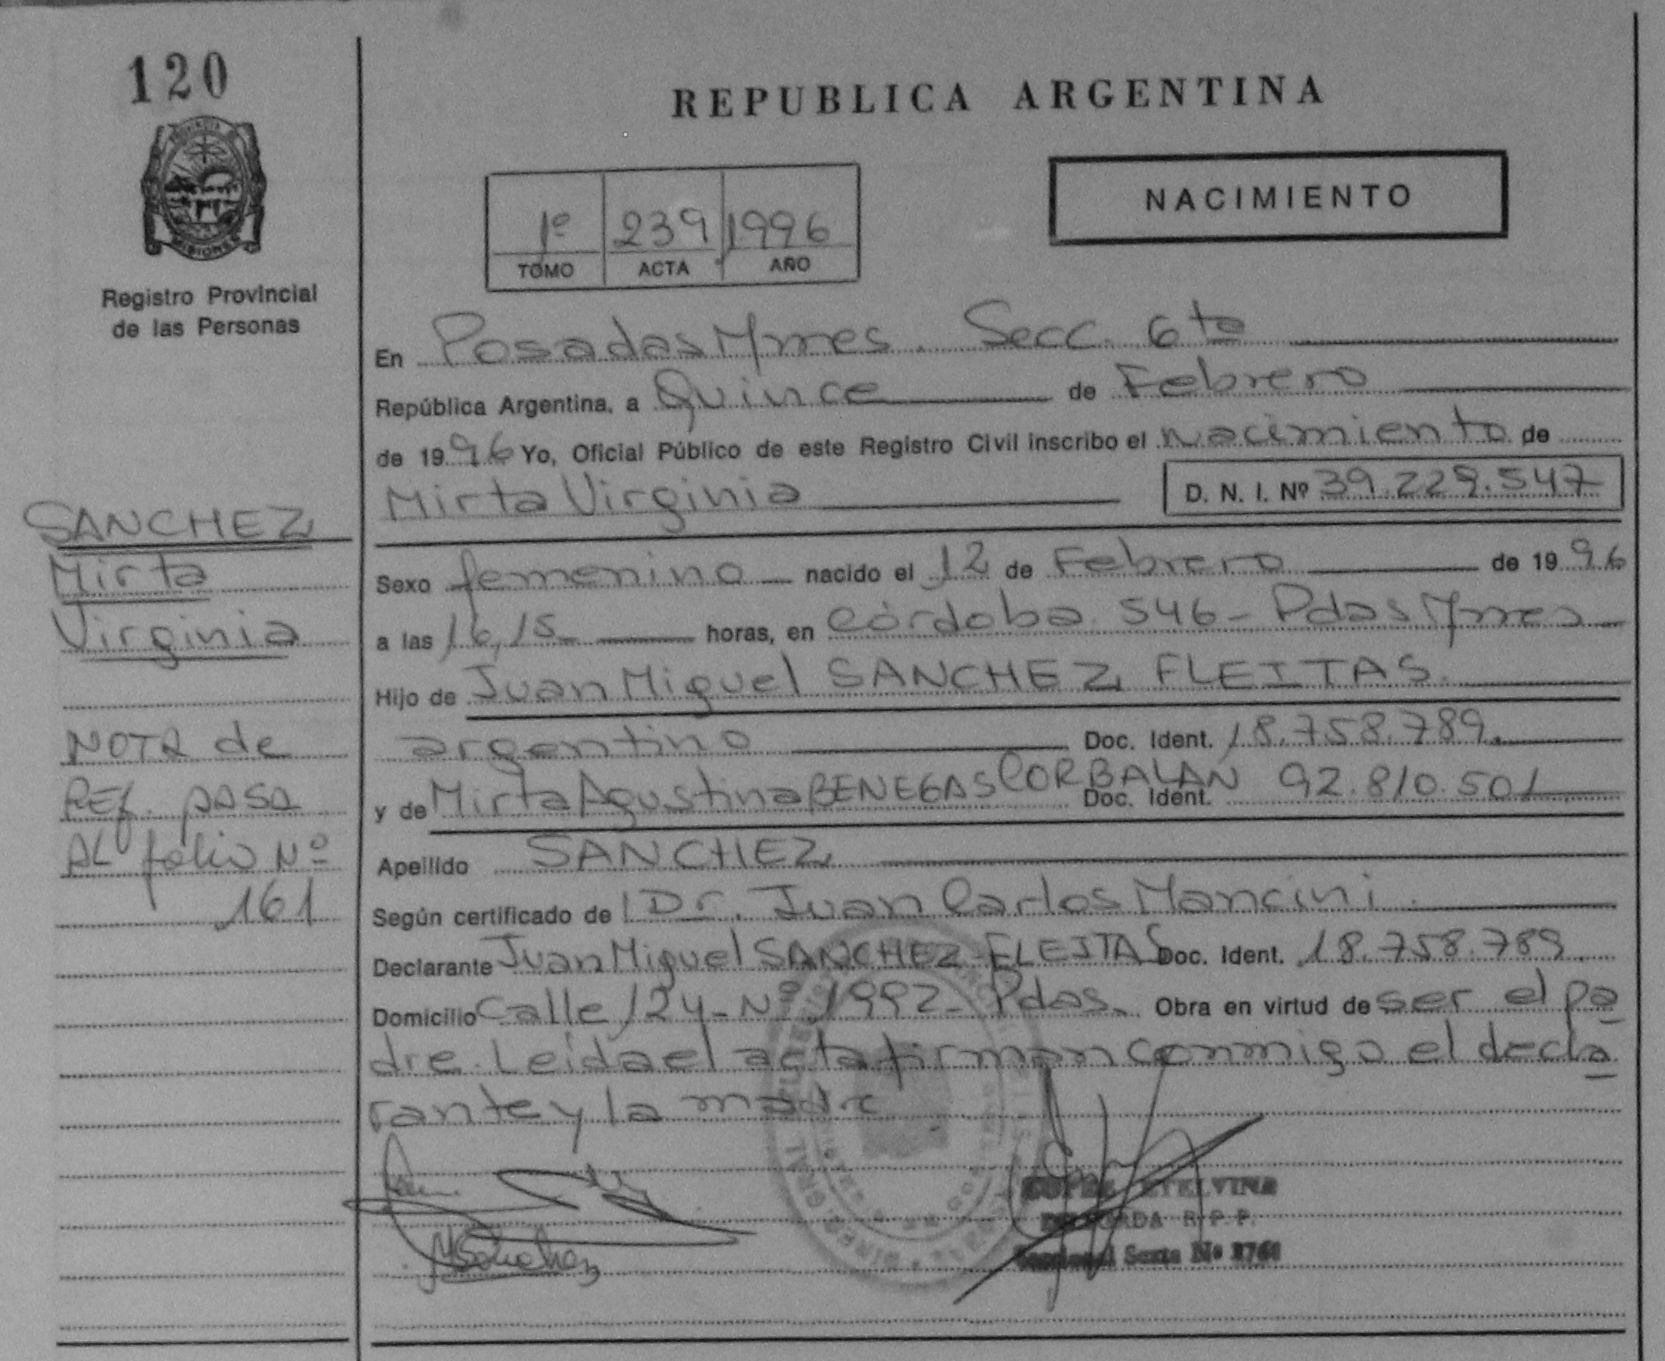 120
PROVINCIA DE
MISIONES
Registro Provincial
de las Personas
SANCHEZ
Mirta
Virginia
NOTA de
REF. PASA
AL folio Nº
161
REPUBLICA ARGENTINA
NACIMIENTO
1º 239 1996
TOMO ACTA AÑO
En Posadas Mnes. Secc. 6ta
República Argentina, a Quince de Febrero
de 1996 Yo, Oficial Público de este Registro Civil inscribo el nacimiento de
Mirta Virginia D. N. I. Nº 39.229.547
Sexo femenino nacido el 12 de Febrero de 1996
a las 16,15 horas, en Córdoba 546- Pdas Mnes
Hijo de Juan Miguel SANCHEZ FLEITAS.
argentino Doc. Ident. 18.758.789.
y de Mirta Agustina BENEGAS CORBALAN Doc. Ident. 92.810.501
Apellido SANCHEZ
Según certificado de Dr. Juan Carlos Mancini.
Declarante Juan Miguel SANCHEZ FLEITAS Doc. Ident. 18.758.789.
Domicilio Calle 124-Nº 1992- Pdas. Obra en virtud de ser el pa
dre. Leida el acta firman conmigo el decla
rante y la madre
MSanchez
ETELVINA
DELEGADA R.P.P.
Seccional Sexta Nº